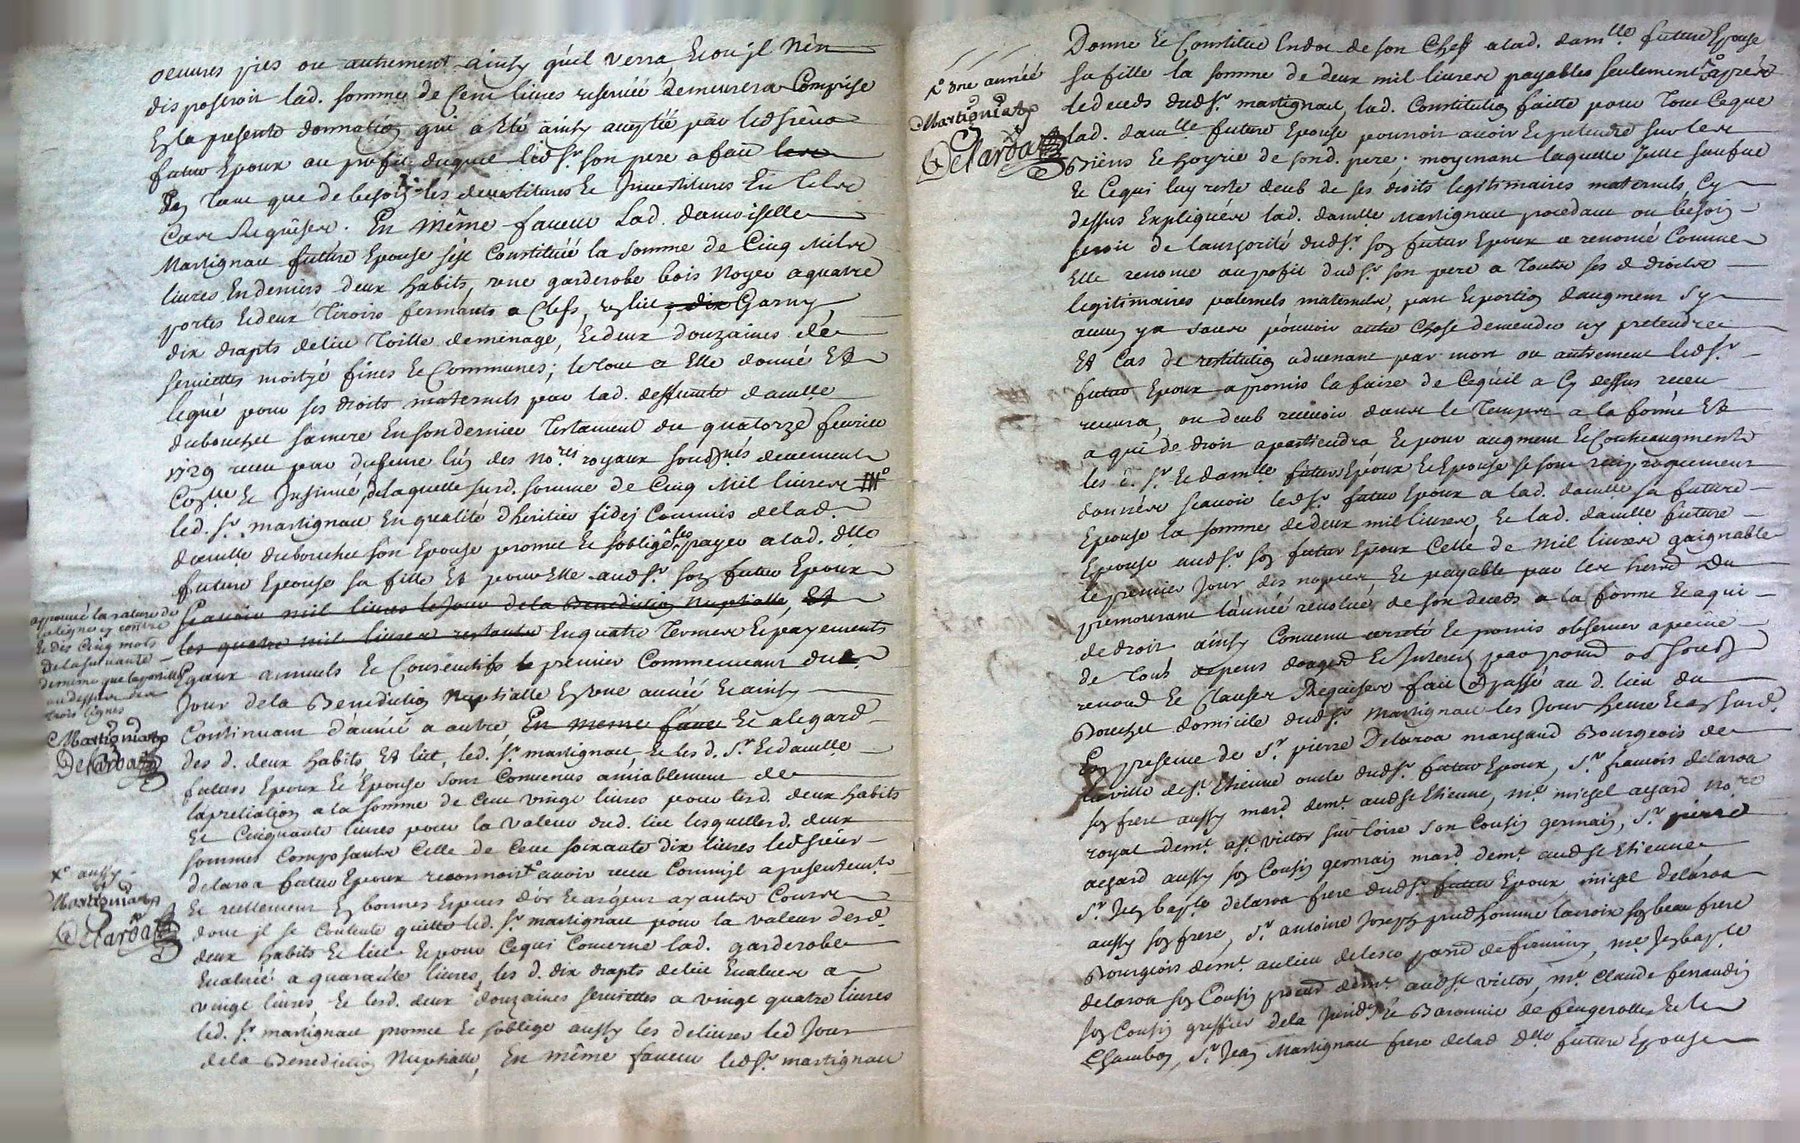 oeuvres pies ou autrement ainsy qu'il verra Et ou jl n'en
disposeroit lad. somme de Cent livres reservéé demeurera Comprise
En la presente donnation qui a Eté ainsy aceptéé par led sieur
futur Epoux au profit duquel led sr. son pere a fait
En Tant que de besoin les devestitures Et Jnvestitures En Telle
Cas Requises. En même faveur Lad. damoiselle
Martignac future Epouse s'est Constituéé la somme de Cinq Mille
livres En deniers deux habits, une garderobe bois Noyer a quatre
portes Et deux Tiroirs fermants a Clefs, un lict Garny
dix drapts de lict Toille de menage, Et deux douzaines de
serviettes moityé fines Et Communes; le Tout a Elle donné Et
legué pour ses droits maternels par lad. deffunte damlle
dubouchet sa mere En son dernier Testament du quatorze fevrier
1729 receu par l'un des Nores. royaux soussignés deuement
Conlle Et Jnsinué, de laquelle susd. somme de Cinq Mil livres
led. sr. martignac En qualité d'heritier fidei Commis de lad.
damlle dubouchet son Epouse promet Et s'oblige payer a lad. dlle
future Epouse sa fille Et pour Elle audsr. son futur Epoux
sçavoir mil livres le jour de la Benediction Nuptialle, Et
les quatre mil livres restants En quatre Termes Et payements
Egaux annuels Et Consecutifs le premier Commencant du
Jour de la Benediction Nuptialle En une année Et ainsy
Continuant d'année a autre, En meme faveur Et a l'egard
des d. deux habits Et lict, led. sr. martignac, Et les d. Sr. Et damlle
futurs Epoux Et Epouse sont Convenus amiablement de
l'apretiation a la somme de Cent vingt livres pour lesd. deux habits
Et Cinquante livres pour la valeur dud. lict lesquelles d. deux
sommes Composants Celle de Cent soixante dix livres led sieur
delaroa futur Epoux reconnoist avoir receu Comme jl a presentement
Et reellement En bonnes Especes d'or Et argent ayants Cours
dont jl se Contente quitte led. sr. martignac pour la valeur desd.
deux habits Et lict Et pour Ce qui Concerne lad. garderobe
Evaluéé a quarante livres, les d. dix drapts de lict Evalues a
vingt livres Et lesd. deux douzaines serviettes a vingt quatre livres
led. sr. martignac promet Et s'oblige aussy les delivrer led Jour
de la Benediction Nuptialle, En même faveur led sr. martignac
approuvé la rature de
lignes cy contre
Et des Cinq mots
de la suivante
de meme que
au dessus des
trois lignes
Martignac
Delaroa
xo aussy
Martignac
Delaroa
xo une annéé
Martignac
Delaroa
Donne Et Constitue En dot de son Cheff a lad. damlle future Epouse
sa fille la somme de deux mil livres payables seulement apres
le deceds dudsr. martignac, lad. Constitution faitte pour Tout Ce que
lad. damlle future Epouse pourroit avoir Et pretendre sur les
Biens Et hoyrie de sond. pere. moyenant laquelle
Et Ce qui luy reste deub de ses droits legitimaires maternels Cy
dessus Expliqués lad. damlle Martignac procedant ou besoin
seroit de l'authorité dudsr. son futur Epoux a renoncé Comme
Elle renonce au profit dudsr. son pere a Touts ses d droits
legitimaires paternels maternels, part Et portion d'augment sy
aucun y a sans pouvoir autre Chose demender ny pretendre
Et Cas de restitution advenant par mort ou autrement ledsr.
futur Epoux a promis la faire de Ce qu'il a Cy dessus receu
recevra, ou deub recevoir dans le Temps a la forme Et
a qui de droit apartiendra Et pour augment Et Contreaugment
les d. sr. Et damlle futurs Epoux Et Epouse se sont reciproquement
donnés sçavoir ledsr. futur Epoux a lad. damlle sa future
Epouse la somme de deux mil livres, Et lad. damlle future
Epouse audsr. son futur Epoux Celle de Mil livres gaignable
le premier Jour des nopces Et payable par les hiers. du
premourant l'année revolue, de son deceds a la forme Et a qui
de droit ainsy Convenu arreté Et promis observer a peine
de Tous depens domages Et Interets
renond. Et Clauses Requises fait Et passé au d. lieu du
Bouchet domicile dudsr. Martignac les Jour heure Et an susd.
En presence de sr. pierre Delaroa marchand Bourgeois de
la ville de st. Etienne oncle dudsr. futur Epoux, sr. francois delaroa
son frere aussy mard. demt. aud st Etienne, me. michel achard nore
royal demt. a st. victor sur loire son Cousin germain, sr. pierre
achard aussy son Cousin germain mard demt. aud st Etienne
sr. Jean bapte. delaroa frere dudsr. futur Epoux michel delaroa
aussy son frere, sr. antoine Joseph prudhomme lacroix son beau frere
Bourgeois demt. au lieu de parr de firminy, me Jean bapte
delaroa son Cousin demt. aud st victor, me. Claude
son Cousin greffier de la Baronnie de feugerolles Et le
Chambon, sr. Jean Martignac frere de lad dlle future Epouse